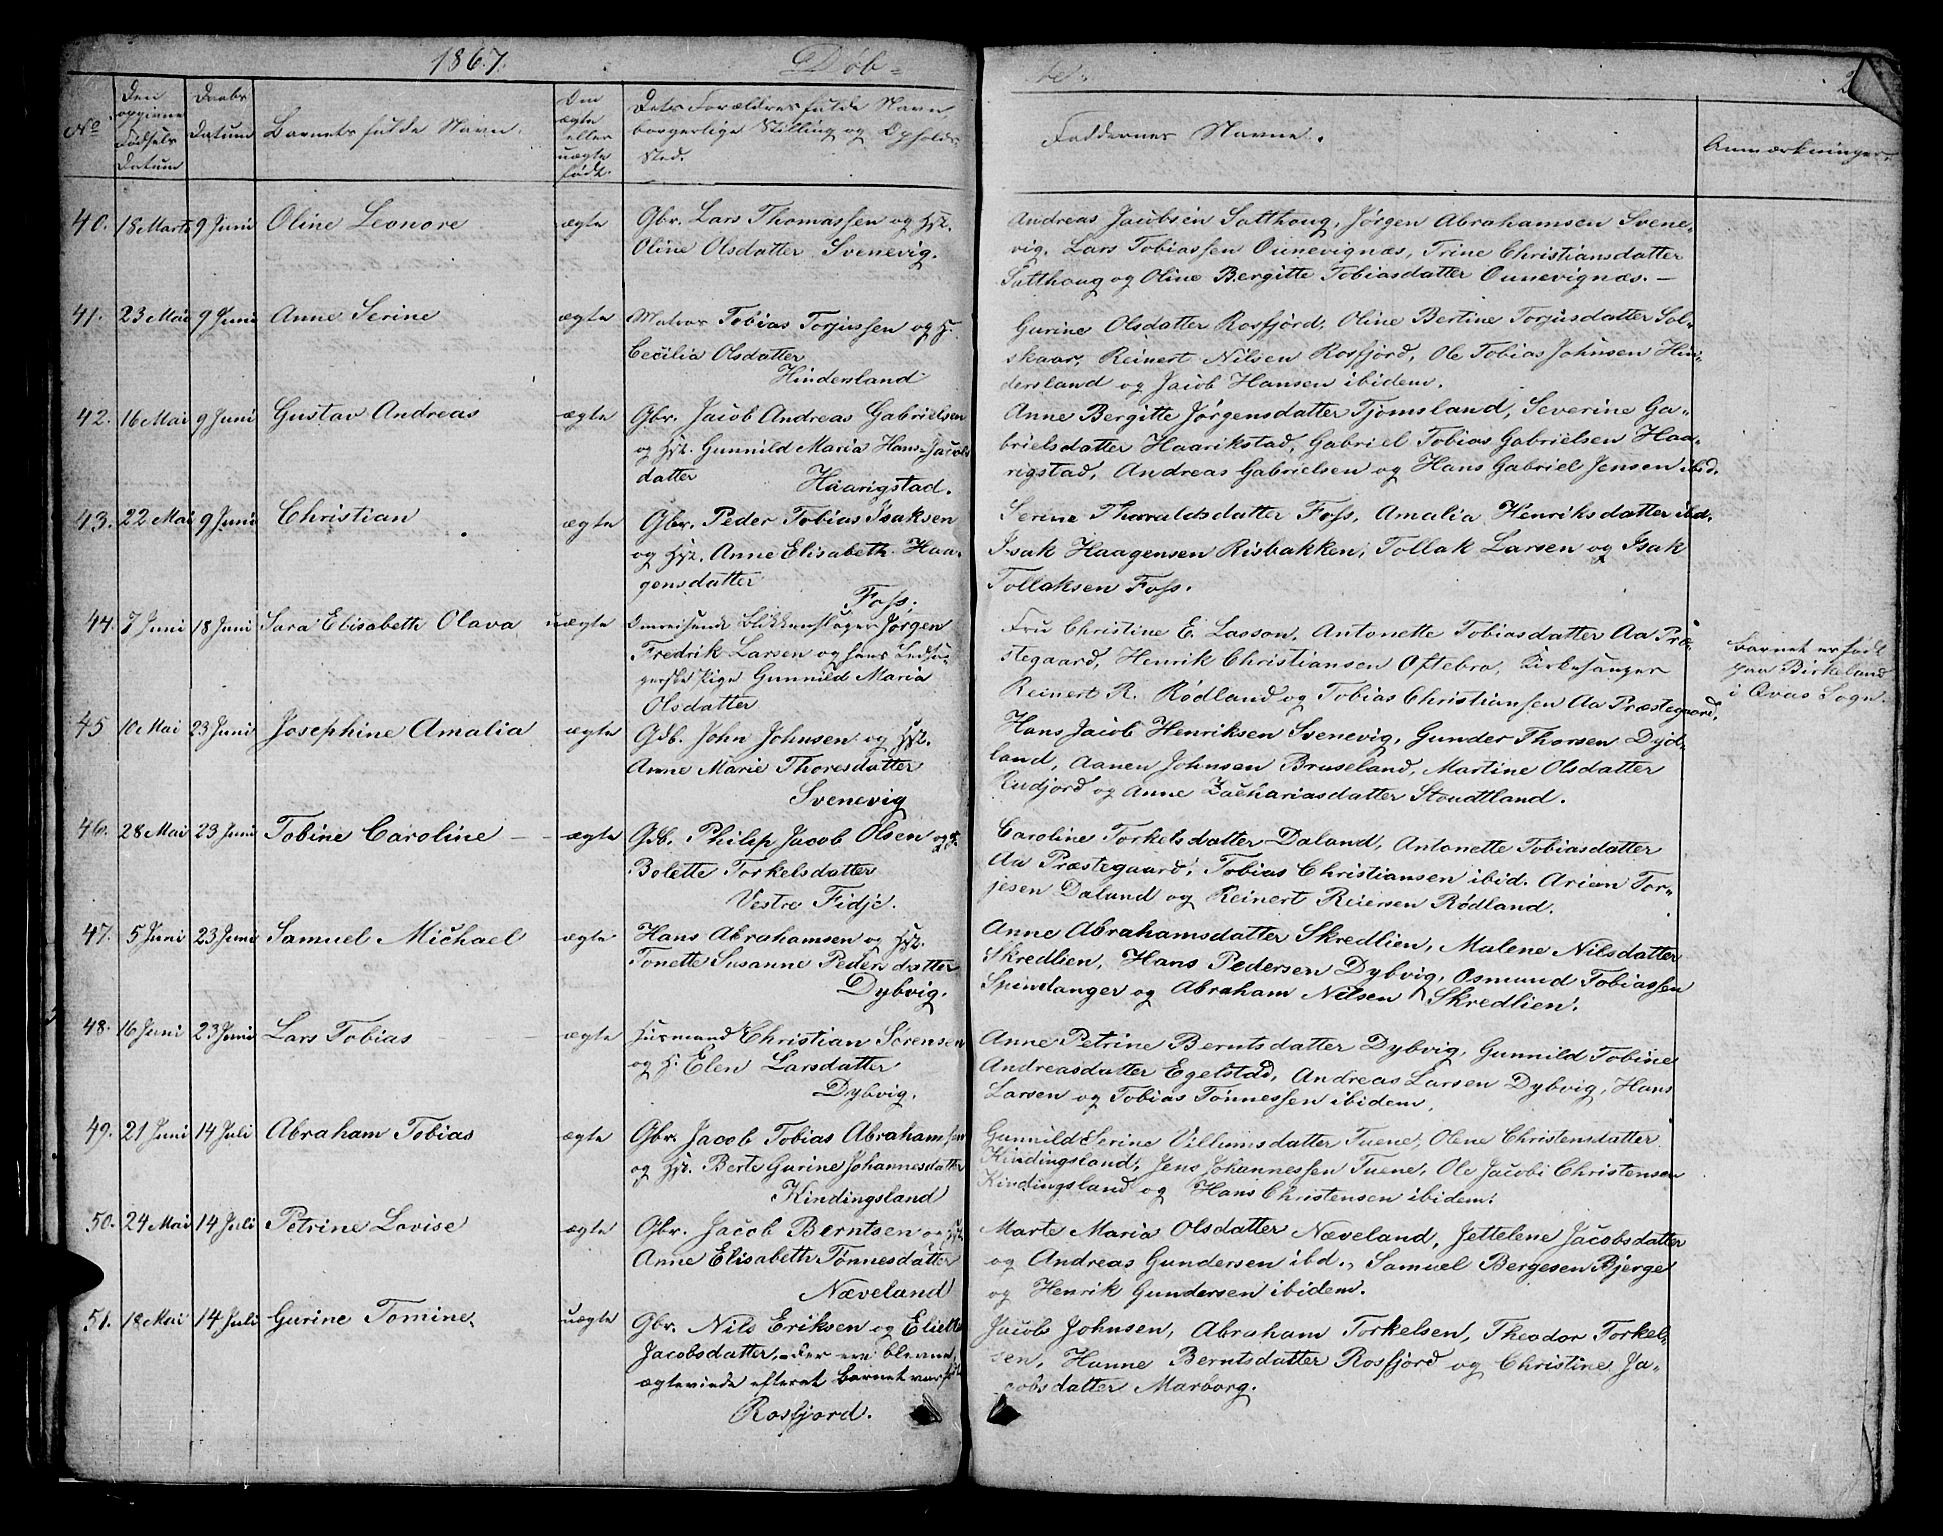 1867. Døb-
te.
No
Den opgivne Fødsels Datum
Daabs Datum
Barnets fulde Navn.
Om ægte eller uægte født.
Dets Forældres fulde Navn borgerlige Stilling og Opholds-
Sted.
Faddernes Navne.
Anmærkninger.
40. 18 Marts 9 Juni Oline Leonore ægte Gbr. Lars Thomassen og Hst.
Oline Olsdatter Svenevig.
Andreas Jacobsen Satthoug, Jørgen Abrahamsen Svene-
vig, Lars Tobiassen Ounevignæs, Trine Christiansdatter
Satthoug og Oline Bergitte Tobiasdatter Ounevignæs. —
41. 23 Mai 9 Juni Anne Serine ægte Matros Tobias Torjussen og H.
Cecilia Olsdatter
Hindersland
Gurine Olsdatter Rosfjord, Oline Bertine Torjusdatter Sol-
skaar, Reinert Nilsen Rosfjord, Ole Tobias Johnsen Hin-
dersland og Jacob Hansen ibidem.
42. 16 Mai 9 Juni Gustav Andreas ægte Gbr. Jacob Andreas Gabrielsen
og Hst. Gunnild Maria Hans-Jacobs
datter Haarigstad.
Anne Bergitte Jørgensdatter Tjomsland, Severine Ga-
brielsdatter Haarikstad, Gabriel Tobias Gabrielsen Haa-
rigstad, Andreas Gabrielsen og Hans Gabriel Jensen ibid.
43. 22 Mai 9 Juni Christian ægte Gbr. Peder Tobias Isaksen
og Hst. Anne Elisabeth Haa-
gensdatter
Foss.
Serine Tharaldsdatter Foss, Amalia Henriksdatter ibd.
Isak Haagensen Risbakken, Tollak Larsen og Isak
Tollaksen Foss.
44. 7 Juni 18 Juni Sara Elisabeth Olava uægte Omreisende Blikkenslager Jørgen
Fredrik Larsen og hans Ledsa-
gerske Pige Gunnild Maria
Olsdatter
Fru Christine E. Lasson, Antonette Tobiasdatter Aa Præ-
stegaard, Henrik Christiansen Oftebro, Kirkesanger
Reinert R. Rødland og Tobias Christiansen Aa Præstegaard.
Barnet er født
paa Birkeland
i Qvas Sogn.
45 10 Mai 23 Juni Josephine Amalia ægte Gdb. John Johnsen og Hst.
Anne Marie Thoresdatter
Svenevig
Hans Jacob Henriksen Svenevig, Gunder Thorsen Dyd-
land, Aanen Johnsen Bruseland, Martine Olsdatter
og Anne Zachariasdatter Stoudtland.
46. 28 Mai 23 Juni Tobine Caroline ægte Gdb. Philip Jacob Olsen og H.
Bolette Torkelsdatter
Vestre Fidje.
Caroline Torkelsdatter Daland, Antonette Tobiasdatter
Aa Præstegaard, Tobias Christiansen ibid. Arian Tor-
jesen Daland og Reinert Reiersen Rødland.
47. 5 Juni 23 Juni Samuel Michael ægte Hans Abrahamsen og Hst.
Tonette Susanne Pedersdatter
Dybvig.
Anne Abrahamsdatter Skredlien, Malene Nilsdatter
Skredlien, Hans Pedersen Dybvig, Osmund Tobiassen
Spindanger og Abraham Nilsen Skredlien.
48. 16 Juni 23 Juni Lars Tobias ægte Husmand Christian Sørensen
og H. Elen Larsdatter
Dybvig.
Anne Petrine Berntsdatter Dybvig, Gunnild Tobine
Andreasdatter Egelstad, Andreas Larsen Dybvig, Hans
Larsen og Tobias Tønnessen ibidem.
49. 21 Juni 14 Juli Abraham Tobias ægte Gbr. Jacob Tobias Abrahamsen
og Hst. Berte Gurine Johannesdatter
Kindingsland
Gunnild Serine Villumsdatter Tuene, Olene Christensdatter
Kindingsland, Jens Johannessen Tuene, Ole Jacob Christensen
Kindingsland og Hans Christensen ibidem.
50. 24 Mai 14 Juli Petrine Lovise ægte Gbr. Jacob Berntsen og Hst.
Anne Elisabeth Tønnesdatter
Næveland
Marte Maria Olsdatter Næveland, Jettelene Jacobsdatter
og Andreas Gundersen ibd., Samuel Bergesen Bjerge
og Henrik Gundersen ibidem.
51. 18 Mai 14 Juli Gurine Tomine uægte Gbr. Nils Eriksen og Eliette
Jacobsdatter, - der ere blevne
ægteviede efterat Barnet var født
Rosfjord.
Jacob Johnsen, Abraham Torkelsen, Theodor Torkel-
sen, Hanne Berntsdatter Rosfjord og Christine Ja-
cobsdatter Marborg.